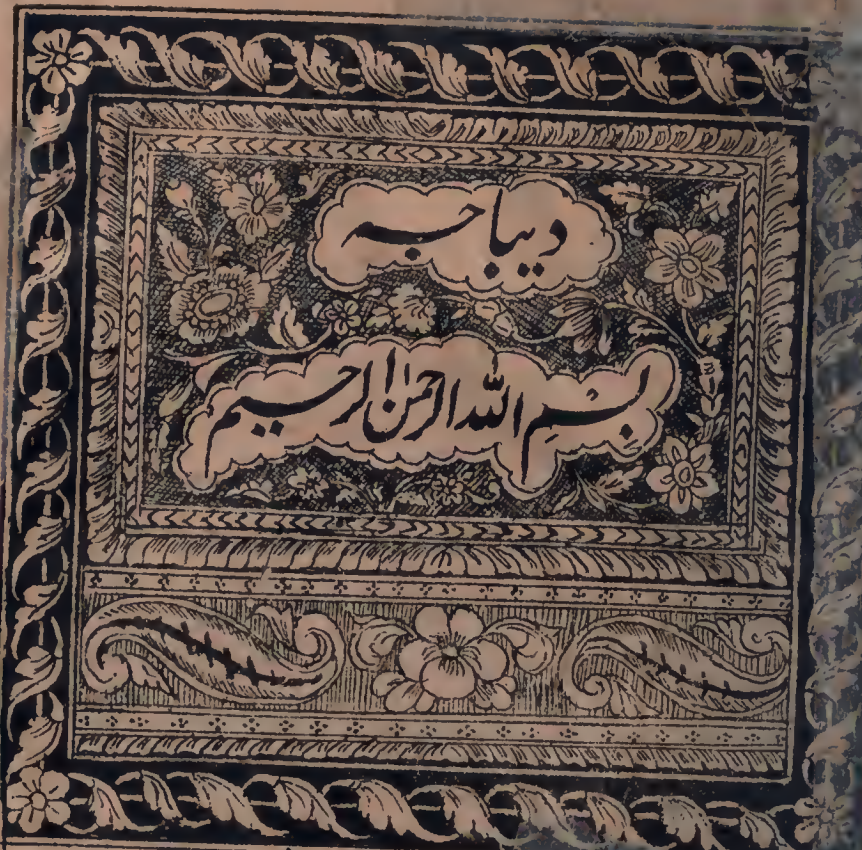 دیباجہ
بسم اللہ الرحمن الرحیم